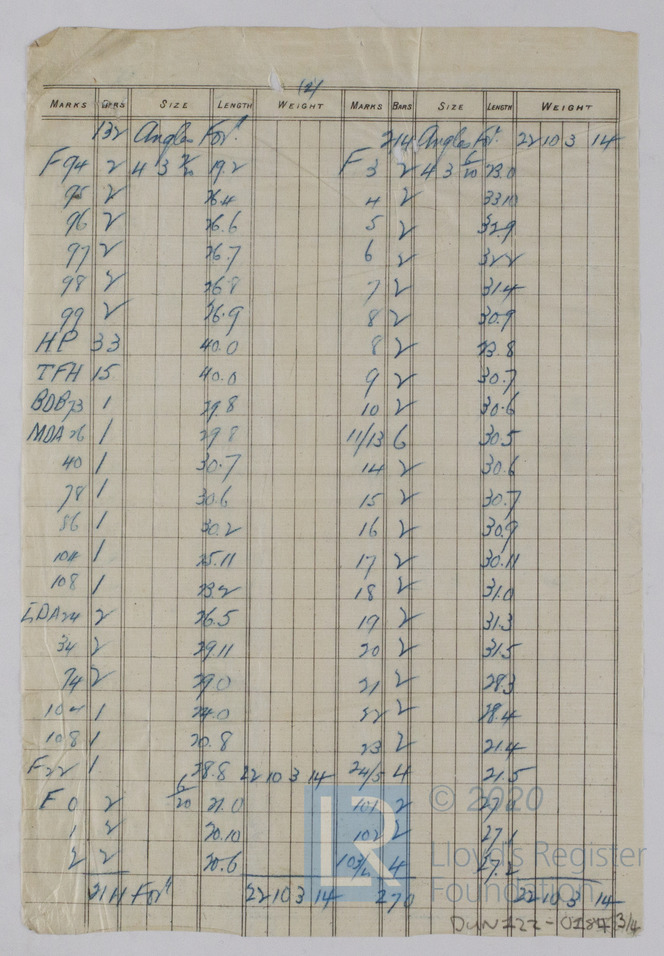 (2)
MARKS BARS SIZE LENGTH WEIGHT MARKS BARS SIZE LENGTH WEIGHT
132 Angles Forᵈ
F94 2 4 3 7/20 19.2
95 2 26.4
96 2 26.6
97 2 26.7
98 2 26.8
99 2 26.9
HP 33 40.0
TFH 15 40.0
BDB 73 1 29.8
MDA 26 1 29.8
40 1 30.7
78 1 30.6
86 1 30.2
104 1 25.11
108 1 23.2
LDA 24 2 26.5
34 2 29.11
74 2 29.0
104 1 24.0
108 1 20.8
F22 1 28.8 22 10 3 14
F 0 2 6/20 21.0
1 2 20.10
2 2 20.6
214 Forᵈ 22 10 3 14
214 Angles Forᵈ 22 10 3 14
F 3 2 4 3 6/20 23.0
4 2 33.10
5 2 32.9
6 2 32.2
7 2 31.4
8 2 30.9
8 2 23.8
9 2 30.7
10 2 30.6
11/13 6 30.5
14 2 30.6
15 2 30.7
16 2 30.9
17 2 30.11
18 2 31.0
19 2 31.3
20 2 31.5
21 2 28.3
22 2 28.4
23 2 21.4
24/5 4 21.5
101 2 27.0
102 2 27.1
103/4 4 27.2
270 22 10 3 14
LR
© 2020
Lloyd's Register
Foundation
DUN122-0184 3/4